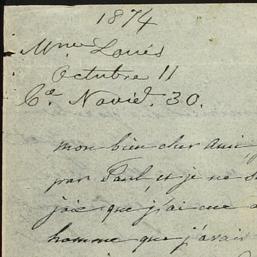 1874
Mme Louis
Octubre 11
Cª Novie. 30.
mon bien cher ami,
par Paul, et je ne s
joie que j'ai eue
homme que j'avais